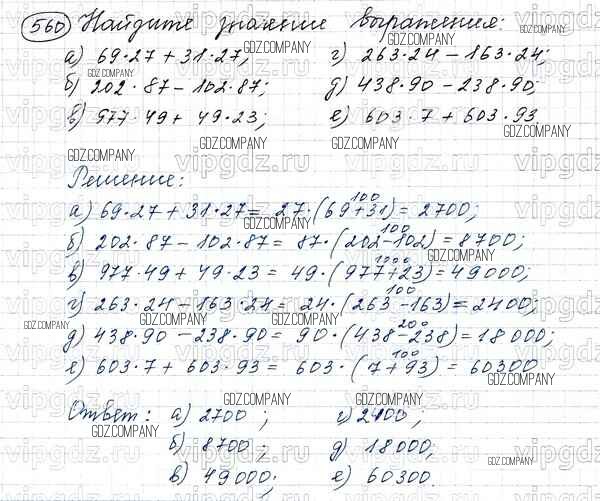 560 Найдите значение выражения:
а) 69·27 + 31·27; г) 263·24 − 163·24;
б) 202·87 − 102·87; д) 438·90 − 238·90;
в) 977·49 + 49·23; е) 603·7 + 603·93.
Решение:
а) 69·27 + 31·27 = 27·(69+31) = 2700;
100
б) 202·87 − 102·87 = 87·(202−102) = 8700;
100
в) 977·49 + 49·23 = 49·(977+23) = 49000;
1000
г) 263·24 − 163·24 = 24·(263−163) = 2400;
100
д) 438·90 − 238·90 = 90·(438−238) = 18000;
200
е) 603·7 + 603·93 = 603·(7+93) = 60300
100
Ответ: а) 2700; г) 2400;
б) 8700; д) 18000;
в) 49000; е) 60300.
GDZ.COMPANY
vipgdz.ru